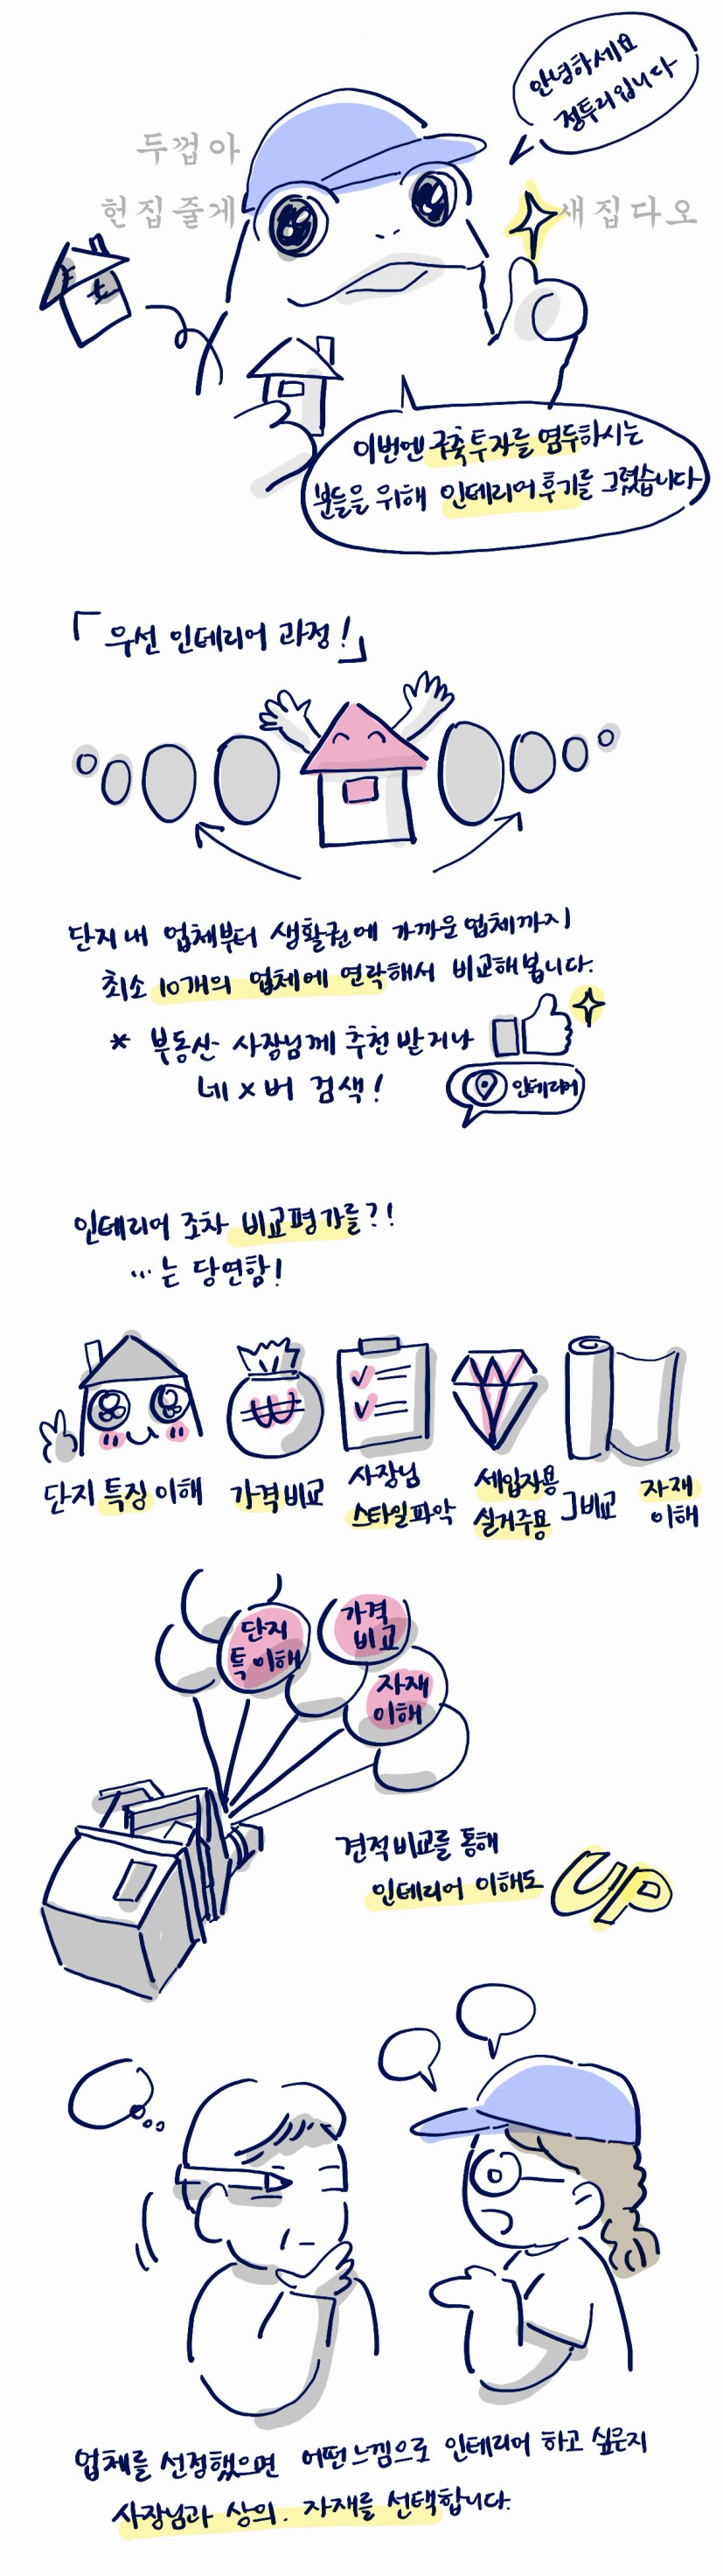 안녕하세요
정투리입니다
두껍아
헌집줄게
새집다오
이번엔 구축투자를 염두하시는
분들을 위해 인테리어후기를 그렸습니다
「우선 인테리어 과정!」
단지 내 업체부터 생활권에 가까운 업체까지
최소 10개의 업체에 연락해서 비교해봅니다.
* 부동산 사장님께 추천 받거나
네x버 검색!
인테리어
인테리어 조차 비교평가를?!
...는 당연함!
단지 특징 이해
가격 비교
사장님
스타일파악
세입자용
실거주용
]비교
자재
이해
단지
특 이해
가격
비교
자재
이해
견적비교를 통해
인테리어 이해도
UP
업체를 선정했으면 어떤느낌으로 인테리어 하고 싶은지
사장님과 상의. 자재를 선택합니다.